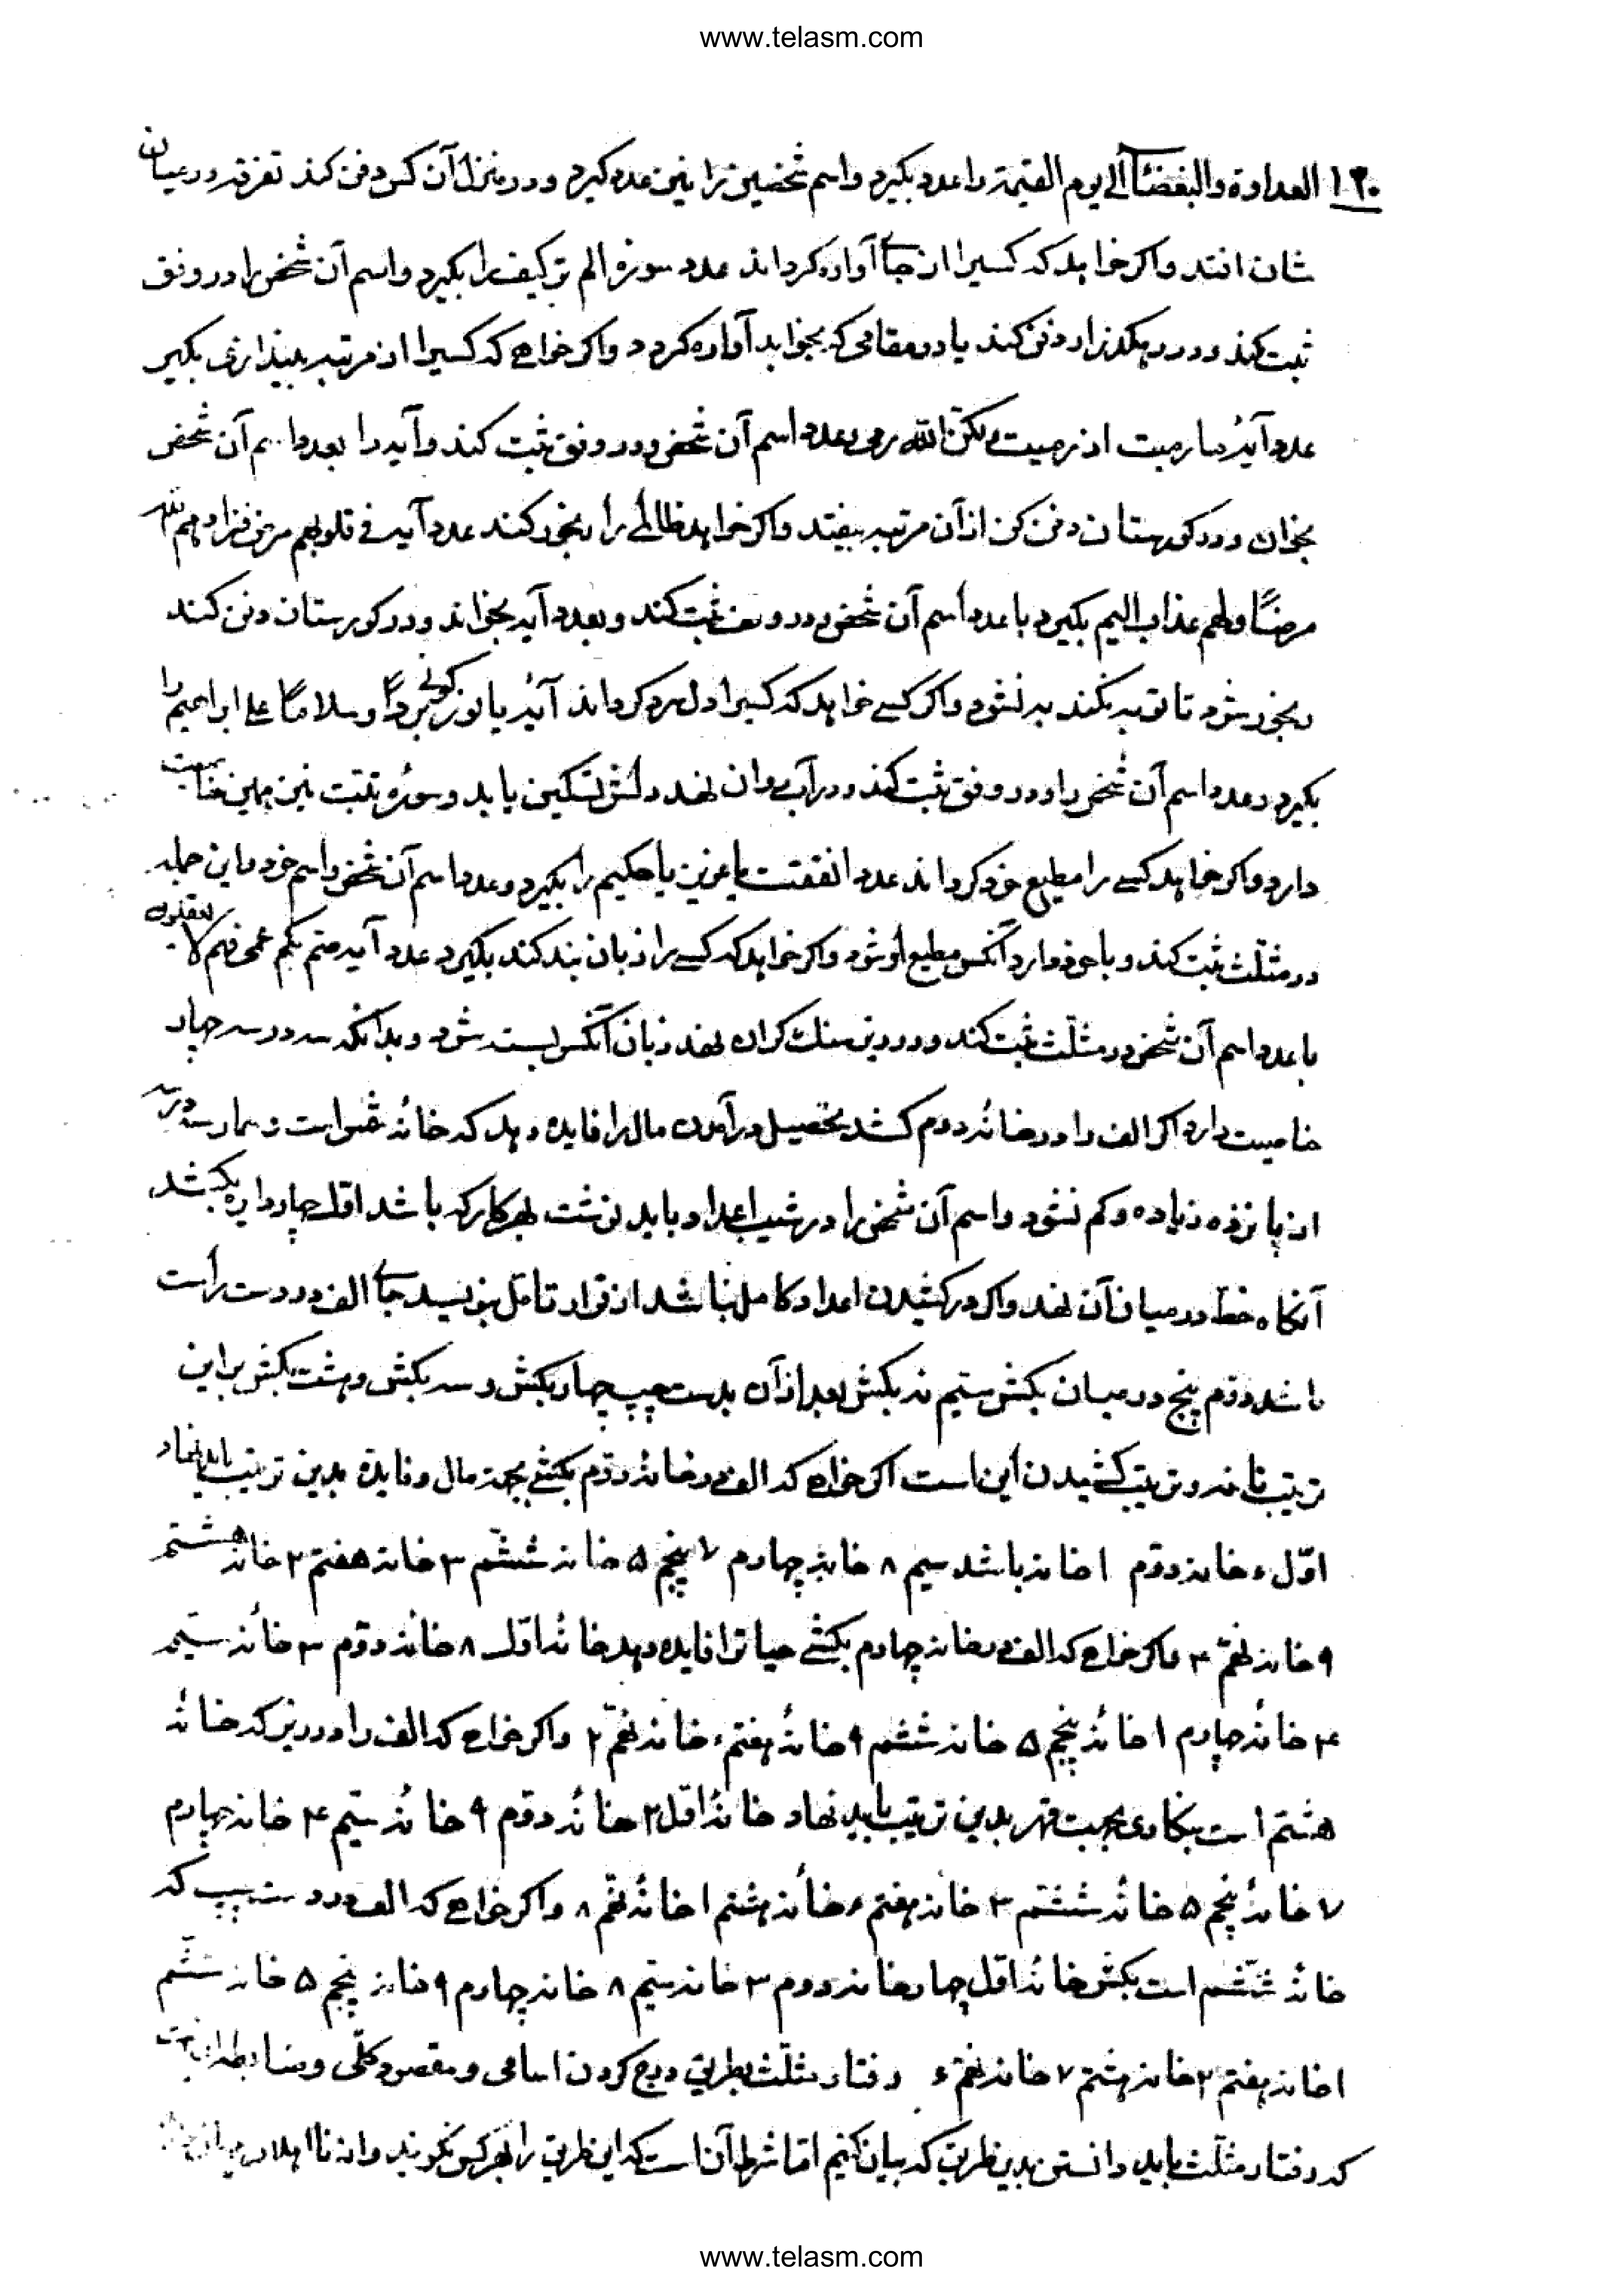 www.telasm.com
۱۲۰ العداوة والبغضآ الی یوم القیمة را عدد بکیرد واسم شخصین را نیز عدد کیرد ودر منزل آن کس دفن کند تفرقه در میان
شان افتد واکر خواهد که کسیرا از جاے آواره کرداند عدد سورۀ الم تر کیف را بکیرد واسم آن شخص را در وفق
ثبت کند ودر رهکذر او دفن کند یا در مقامی که بخواهد آواره کردد واکر خواهے که کسیرا از مرتبه بیندازی بکیر
عدد آیۀ ما رمیت اذ رمیت ولکن الله رمی وعدد اسم آن شخص ودر وفق ثبت کند وآیه را بعدد اسم آن شخص
بخوان ودر کورستان دفن کن از آن مرتبه بیفتد واکر خواهد ظالمے را رنجور کند عدد آیه فے قلوبهم مرض فزادهم الله
مرضًا ولهم عذاب الیم بکیرد با عدد اسم آن شخص ودر وفق ثبت کند وبعدد آیه بخواند ودر کورستان دفن کند
رنجور شود تا توبه نکند به نشود واکر کسے خواهد که کسیرا دل سرد کرداند آیۀ یا نار کونے بردًا وسلامًا علے ابراهیم را
بکیرد وعدد اسم آن شخص را ودر وفق ثبت کند ودر آب روان نهد دلش تسکین یابد وسورۀ تبت نیز همین خاصیت
دارد واکر خواهد کسے را مطیع خود کرداند عدد انفقت یا عزیز یا حکیم را بکیرد وعدد اسم آن شخص واسم خود واین جمله
در مثلّث ثبت کند وبا خود دارد آنکس مطیع او شود واکر خواهد که کسے را زبان بند کند بکیرد عدد آیه صم بکم عمی فهم لا یعقلون
با عدد اسم آن شخص در مثلّث ثبت کند ودر زیر سنک کران نهد زبان آنکس بسته شود وبدانکه سه در سه چهار
خاصیت دارد اکر الف را در خانۀ دوم کشد بتحصیل در آمدن مال را فایده دهد که خانۀ است
از پانزده زیاده وکم نشود واسم آن شخص را در شیب اعداد باید نوشت بهر کار که باشد اوّل چهار دایره بکشد
آنکاه خط در میان آن نهد واکر در کشیدن اعداد کامل نباشد از قرار تامّل بنویسد جاے الف در دست راست
باشد دوّم پنج در میان بکش سیّم نه بکش بعد از آن بدست چپ چهار بکش وسه بکش وهشت بکش براین
ترتیب وترتیب کشیدن این است اکر خواهے که الف در خانۀ دوّم بکشے بجهة مال وفایده بدین ترتیب باید نهاد
اوّل ۶ خانه دوّم ۱ خانه باشد سیم ۸ خانه چهارم ۷ پنجم ۵ خانه ششم ۳ خانه هفتم ۲ خانه هشتم
۹ خانه نهم ۴ واکر خواهے که الف در خانه چهارم بکشے حیات را فایده دهد خانۀ اوّل ۸ خانۀ دوّم ۳ خانۀ سیّم
۴ خانۀ چهارم ۱ خانۀ پنجم ۵ خانه ششم ۹ خانۀ هفتم ۶ خانه نهم ۲ واکر خواهے که الف را در زیر که خانۀ
هشتم است بنکاری بجهت قهر بدین ترتیب باید نهاد خانۀ اوّل ۲ خانۀ دوّم ۹ خانۀ سیّم ۴ خانه چهارم
۷ خانۀ پنجم ۵ خانۀ ششم ۳ خانه هفتم ۶ خانۀ هشتم ۱ خانۀ نهم ۸ واکر خواهے که الف در دست چپ که
خانۀ ششم است بکش خانۀ اوّل چهار خانه دوم ۳ خانه سیّم ۸ خانه چهارم ۹ خانه پنجم ۵ خانه ششم
۱ خانه هفتم ۲ خانه هشتم ۷ خانه نهم ۶ رفتار مثلّث بطریق درج کردن اسامی ومقصود کلّی وضابطه
که رفتار مثلّث باید دانستن بدین طریق که بیان کنیم امّا شرط آن است که این طریق را بهر کس نکویند واز نا اهلان
www.telasm.com